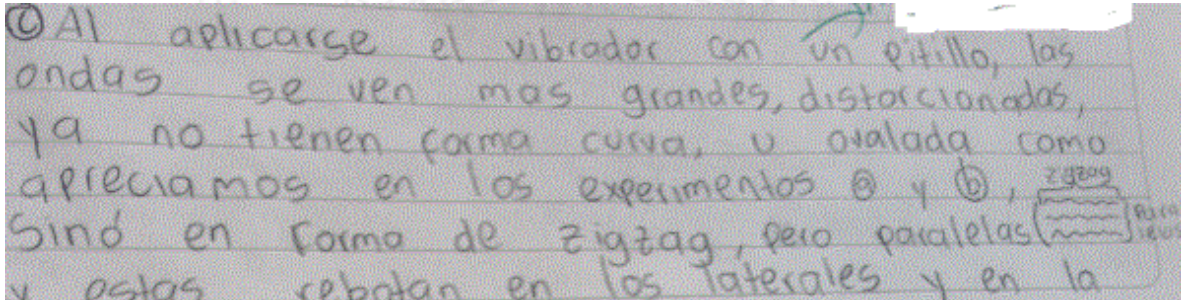 © Al aplicarse el vibrador con un pitillo, las
ondas se ven mas grandes, distorcionadas,
ya no tienen forma curva, u ovalada como
apreciamos en los experimentos ⓐ y ⓑ, zgzag
Sinó en forma de zigzag, pero paralelas
y estas rebotan en los laterales y en la